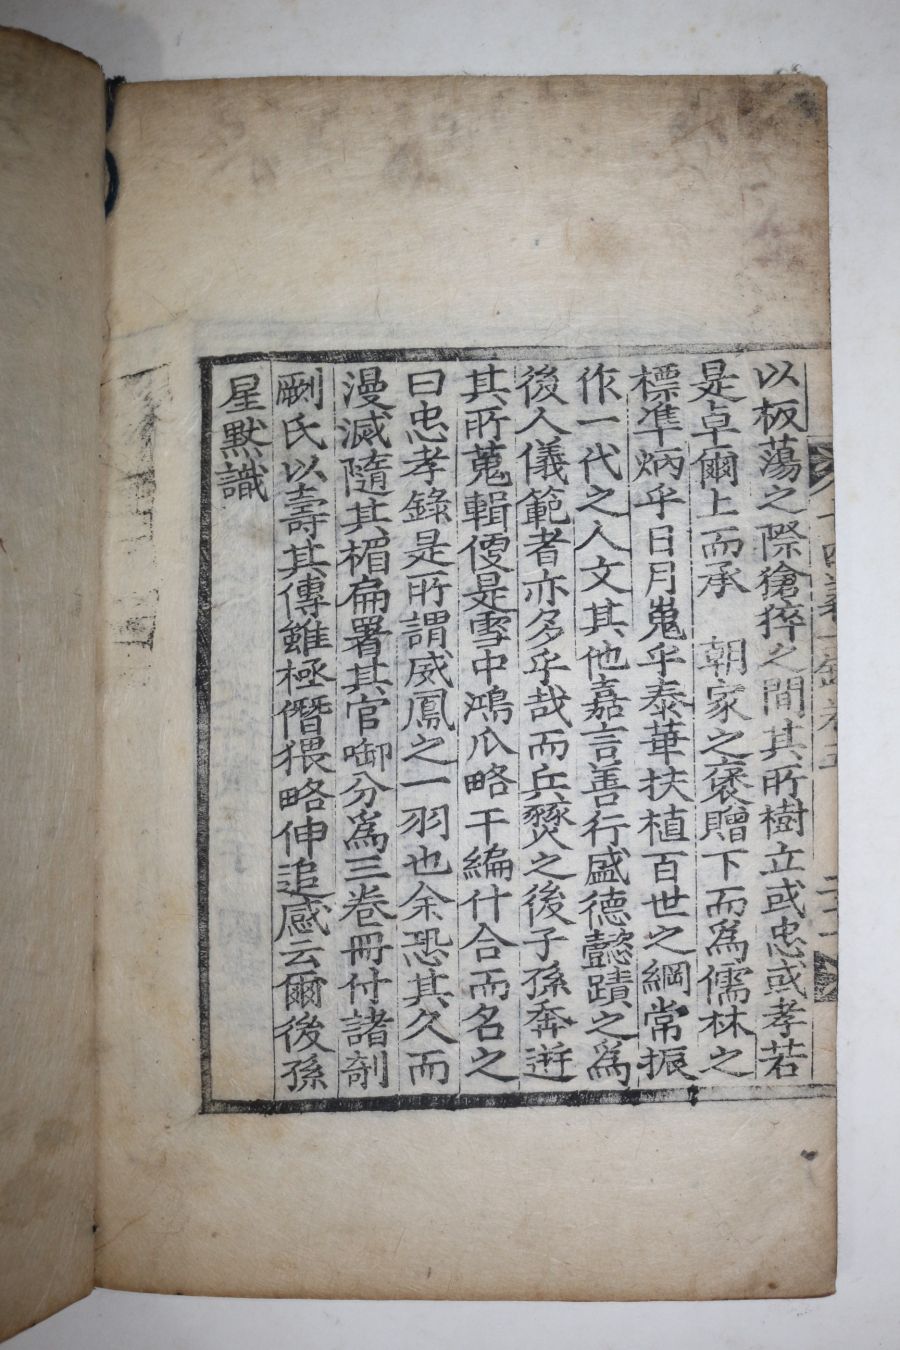 以板蕩之際獊猝之間其所樹立或忠或孝若
是卓爾上而承 朝家之褒贈下而爲儒林之
標準炳乎日月嵬乎泰華扶植百世之綱常振
作一代之人文其他嘉言善行盛德懿蹟之爲
後人儀範者亦多乎哉而兵燹之後子孫奔迸
其所蒐輯僾是雪中鴻爪略干編什合而名之
曰忠孝錄是所謂威鳳之一羽也余恐其久而
漫滅隨其楣扁署其官啣分爲三卷冊付諸剞
劂氏以壽其傳雖極僭猥略伸追感云爾後孫
星默識